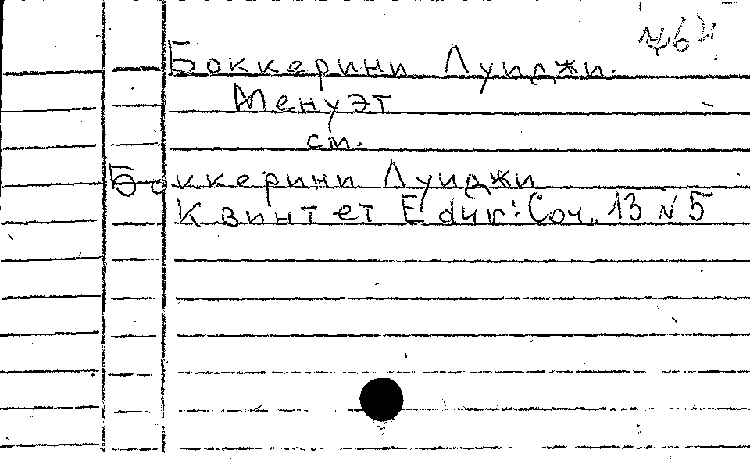 Боккерини Луиджи.
Менуэт
см.
Боккерини Луиджи
Квинтет E dur. Соч. 13 N 5